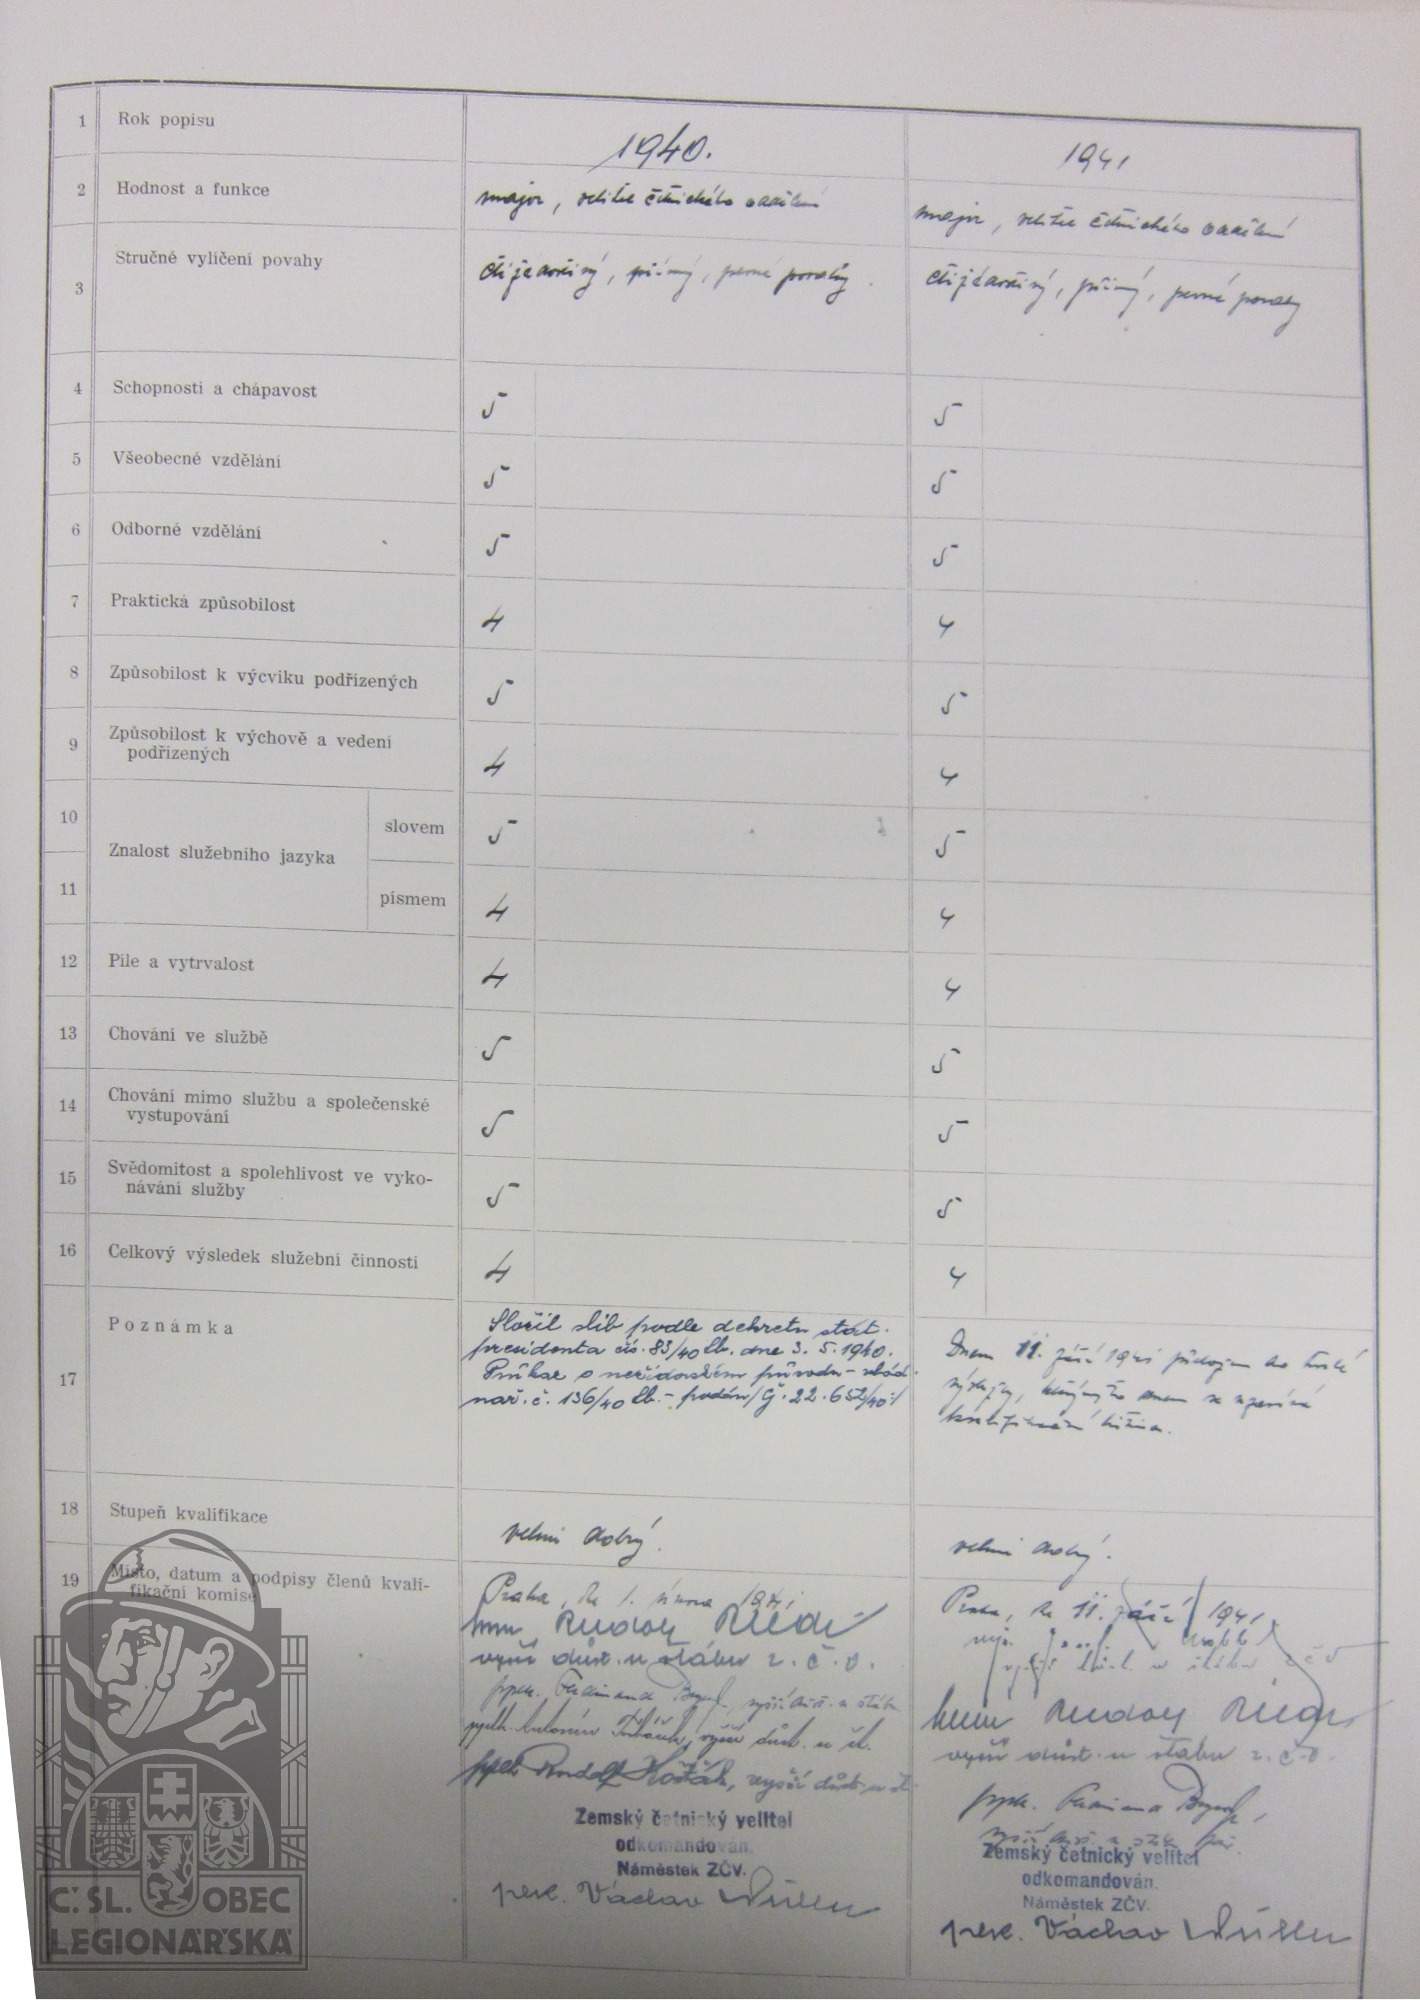 1 Rok popisu 1940. 1941
2 Hodnost a funkce major, velitel četnického oddělení major, velitel četnického oddělení
3 Stručné vylíčení povahy ctižádostivý, přímý, pevné povahy. ctižádostivý, přímý, pevné povahy
4 Schopnosti a chápavost 5 5
5 Všeobecné vzdělání 5 5
6 Odborné vzdělání 5 5
7 Praktická způsobilost 4 4
8 Způsobilost k výcviku podřízených 5 5
9 Způsobilost k výchově a vedení
podřízených 4 4
10 slovem 5 5
Znalost služebního jazyka
11 písmem 4 4
12 Píle a vytrvalost 4 4
13 Chování ve službě 5 5
14 Chování mimo službu a společenské
vystupování 5 5
15 Svědomitost a spolehlivost ve vyko-
návání služby 5 5
16 Celkový výsledek služební činnosti 4 4
17 Poznámka
Složil slib podle dekretu stát.
presidenta čís. 83/40 Sb. dne 3. 5. 1940.
Průkaz o nežidovském původu - vlád.
nař. č. 136/40 Sb. - podán /Č. 22.652/40/
Dnem 11. září 1941 do
výslužby, dnem se uzavírá
kvalifikační listina.
18 Stupeň kvalifikace velmi dobrý. velmi dobrý.
19 Místo, datum a podpisy členů kvali-
fikační komise
Praha, 1. února 1941
Rudolf
vyšší důst. u štábu z. č. v.
pplk. Ferdinand vyšší důst. u
vyšší důst. u
pplk. Rudolf Košťák, vyšší důst. u
Zemský četnický velitel
odkomandován.
Náměstek ZČV.
Václav
Praha, 11. září 1941
Rudolf
vyšší důst. u štábu z. č. v.
pplk. Ferdinand
Zemský četnický velitel
odkomandován.
Náměstek ZČV.
Václav
Č. SL. OBEC
LEGIONÁŘSKÁ